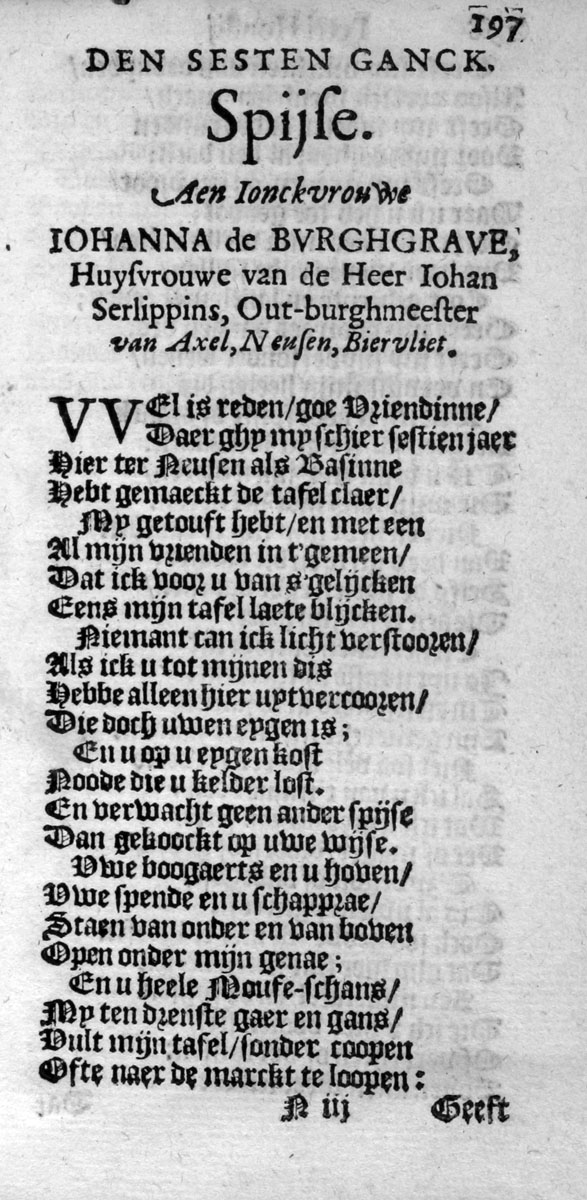 197
DEN SESTEN GANCK.
Spijſe.
Aen Ionckvrouwe
IOHANNA de BVRGHGRAVE,
Huyſvrouwe van de Heer Iohan
Serlippins, Out-burghmeeſter
van Axel, Neuſen, Biervliet.
VVEl is reden/goe Vriendinne/
Daer ghy my ſchier ſeſtien jaer
Hier ter Neuſen als Baſinne
Hebt gemaeckt de tafel claer/
My getouft hebt/en met een
Al mijn vrienden in t'gemeen/
Dat ick voor u van s'gelijcken
Eens mijn tafel laete blijcken.
Niemant can ick licht verſtooren/
Als ick u tot mijnen dis
Hebbe alleen hier uytvercooren/
Die doch uwen eygen is;
En u op u eygen koſt
Noode die u kelder loſt.
En verwacht geen ander ſpijſe
Dan gekoockt op uwe wijſe.
Vwe boogaerts en u hoven/
Vwe ſpende en u ſchapprae/
Staen van onder en van boven
Open onder mijn genae;
En u heele Mouſe-ſchans/
My ten dienſte gaer en gans/
Vult mijn tafel/ſonder coopen
Ofte naer de marckt te loopen:
N iij Geeft